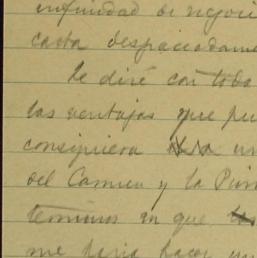 infinidad de negoci
carta despaciadame
Le diré con toda
las ventajas que pu
consiguiera un
del Carmen y la Pur
terminos en que
me haria hacer un